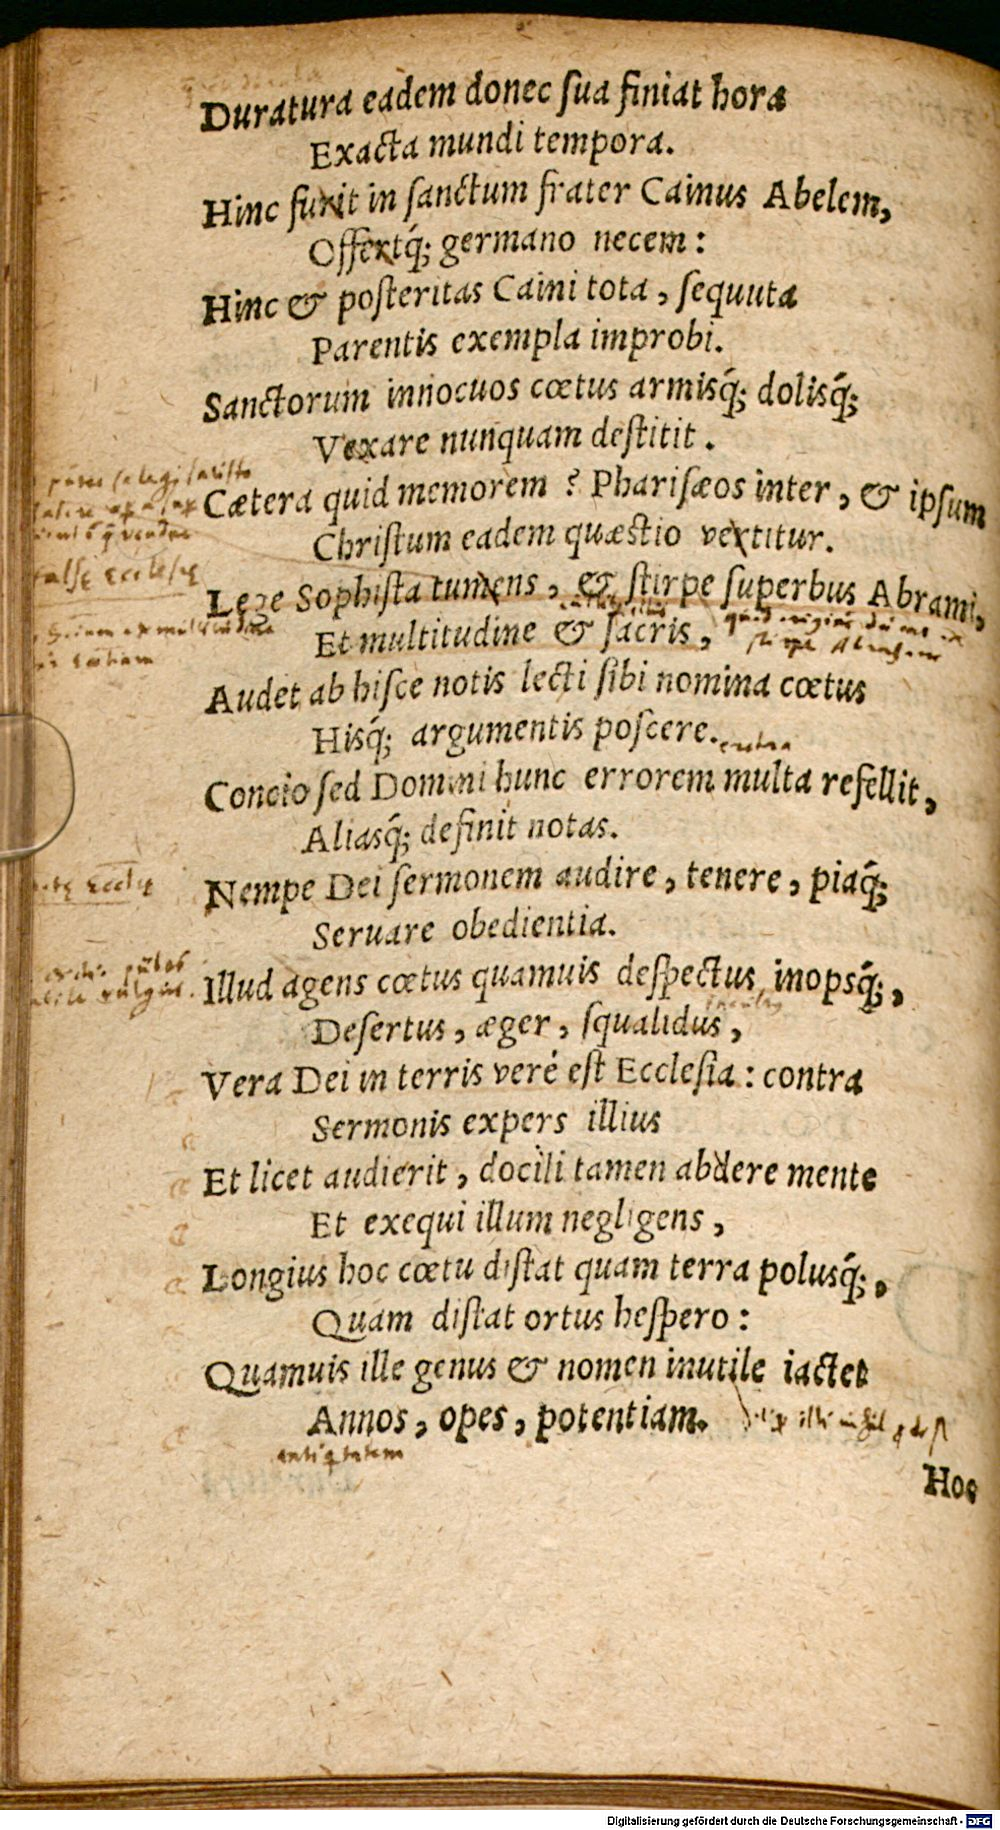 Duratura eadem donec ſua finiat hora
Exacta mundi tempora.
Hinc furit in ſanctum frater Cainus Abelem,
Offertq́; germano necem:
Hinc & poſteritas Caini tota, ſequuta
Parentis exempla improbi.
Sanctorum innocuos cœtus armisq́; dolisq́;
Vexare nunquam deſtitit.
Cætera quid memorem? Phariſæos inter, & ipſum
Chriſtum eadem quæſtio vertitur.
Lege Sophiſta tumens, & ſtirpe ſuperbus Abrami,
Et multitudine & ſacris,
Audet ab hiſce notis lecti ſibi nomina cœtus
Hisq́; argumentis poſcere.
Concio ſed Domini hunc errorem multa refellit,
Aliasq́; definit notas.
Nempe Dei ſermonem audire, tenere, piaq́;
Seruare obedientia.
Illud agens cœtus quamuis deſpectus, inopsq́;,
Deſertus, æger, ſqualidus,
Vera Dei in terris veré eſt Eccleſia: contra
Sermonis expers illius
Et licet audierit, docili tamen abdere mente
Et exequi illum negligens,
Longius hoc cœtu diſtat quam terra polusq́;,
Quam diſtat ortus heſpero:
Quamuis ille genus & nomen inutile iactet
Annos, opes, potentiam.
antiq̃tatem
Hoc
Digitalisierung gefördert durch die Deutsche Forschungsgemeinschaft - DFG